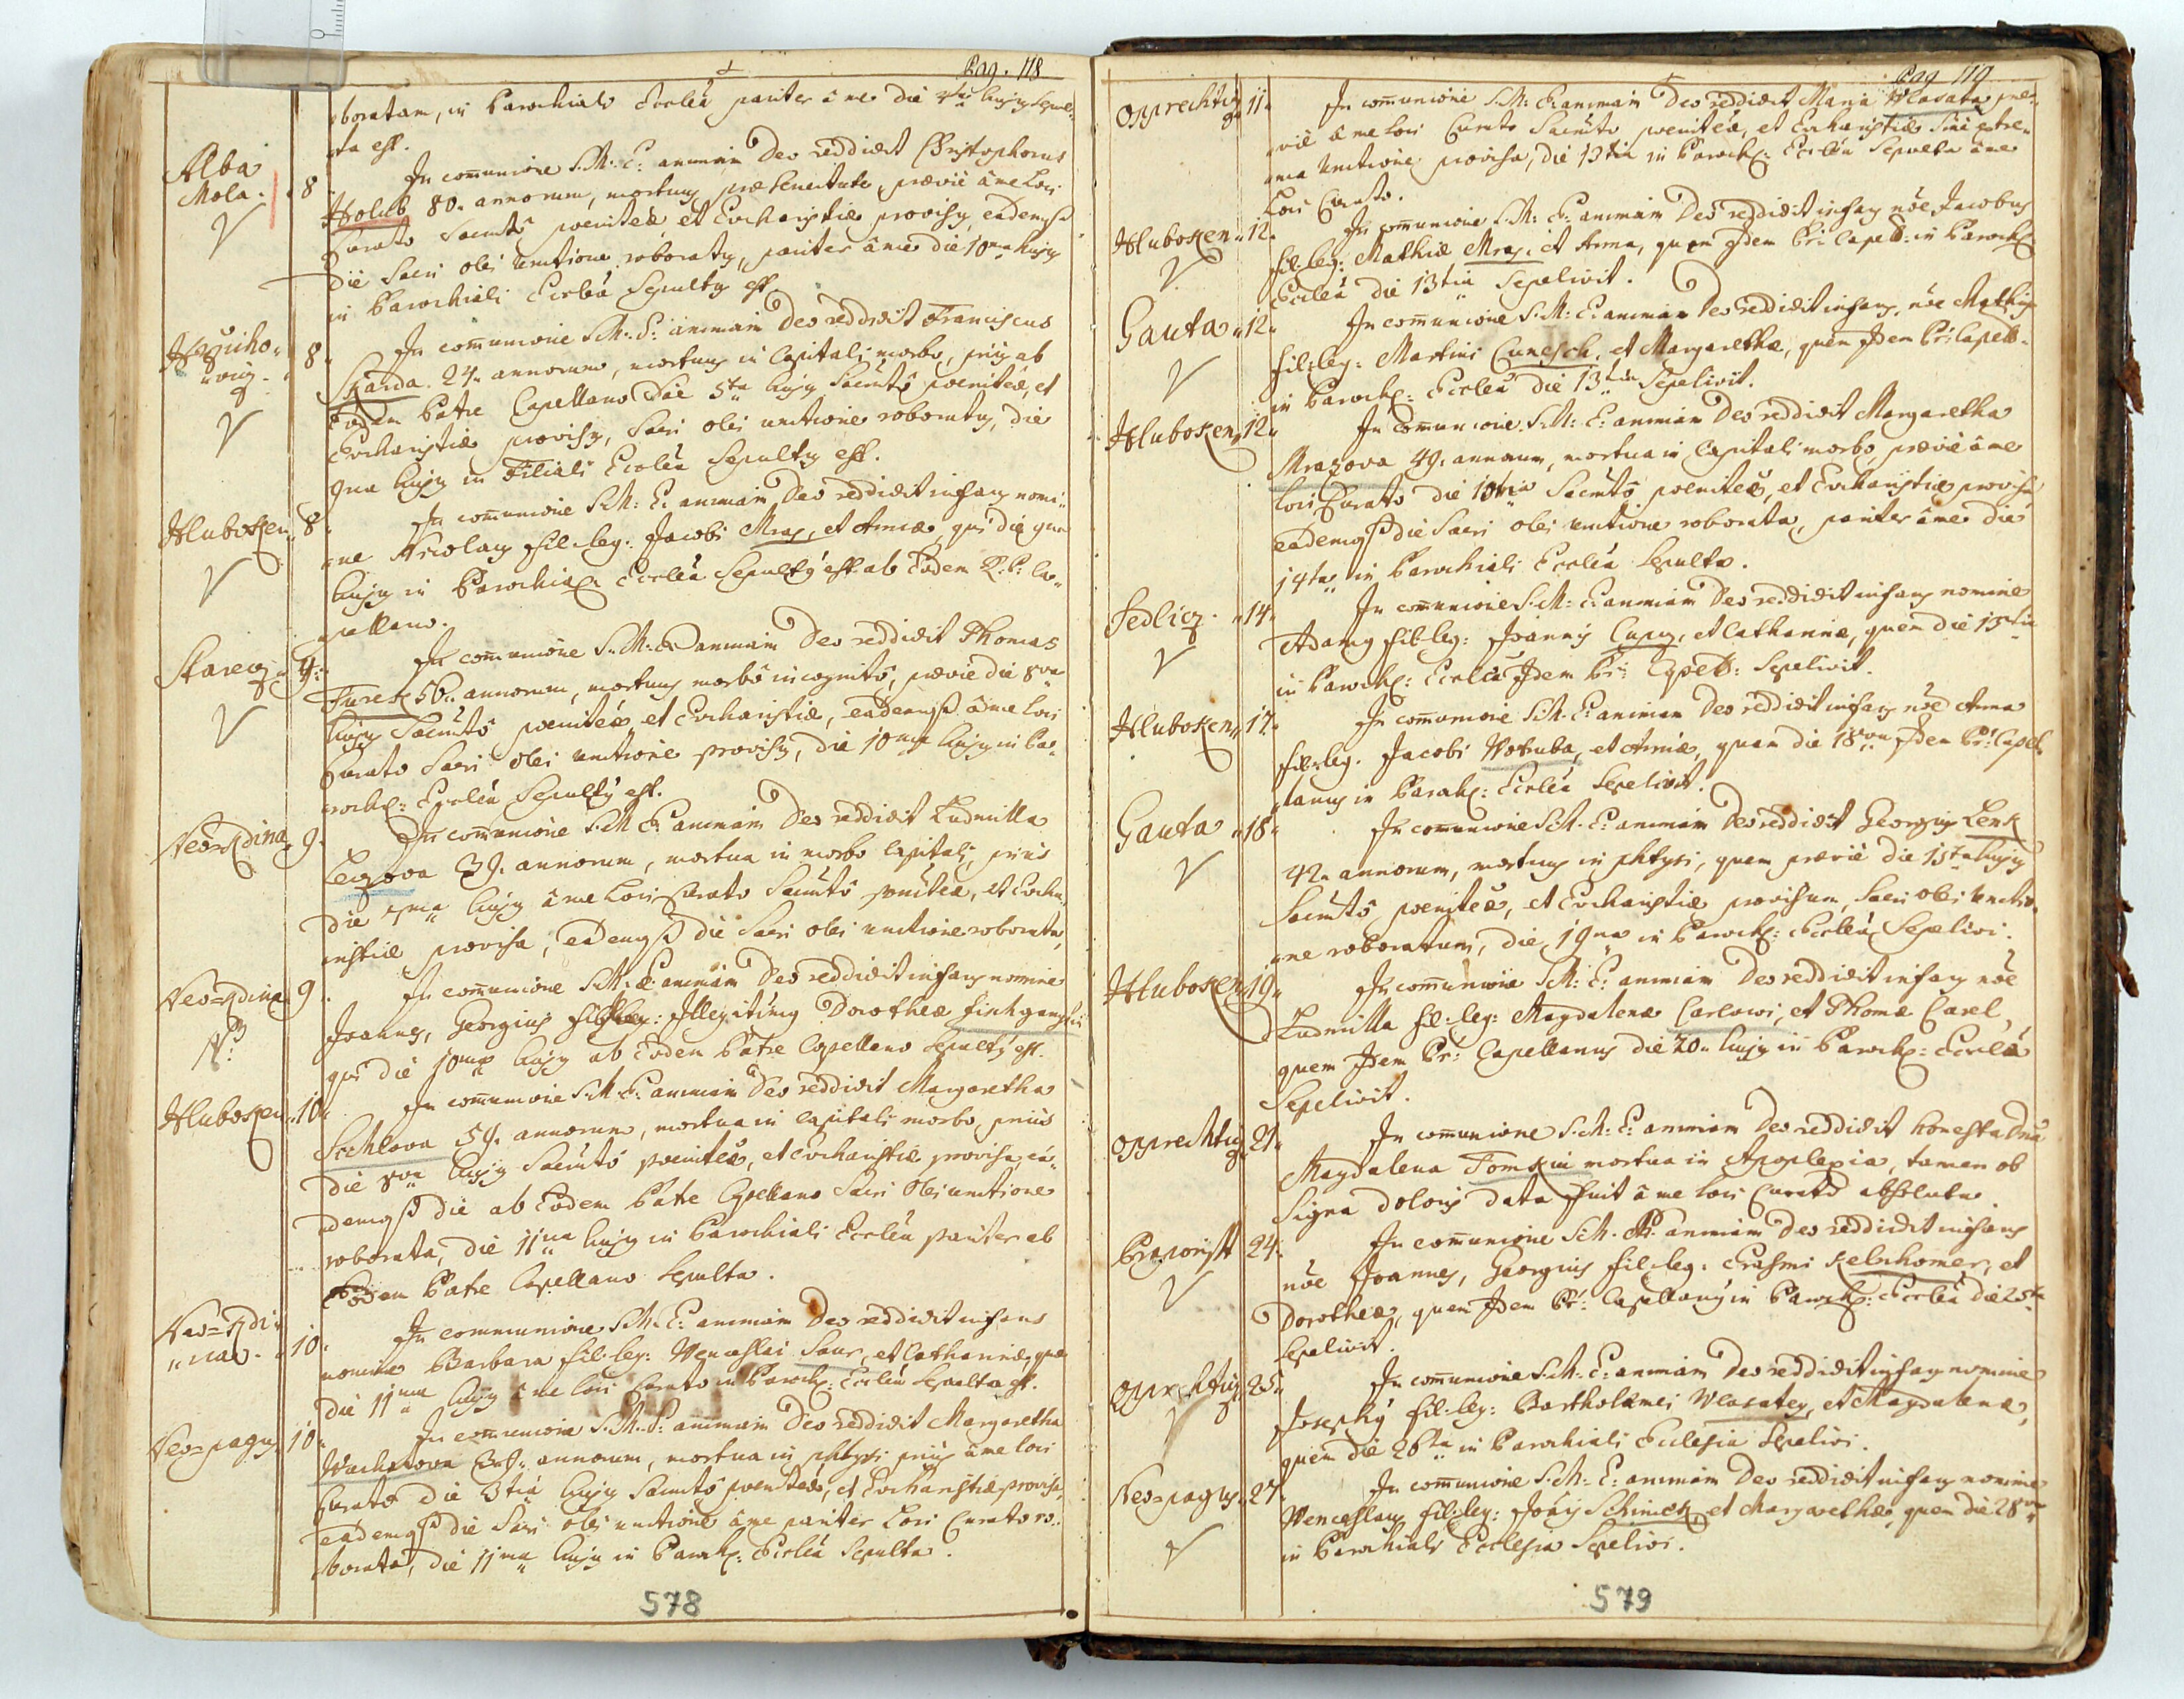 Pag. 118
boratam, in Parochiali Ecclêa pariter â me die hujg sepul-
ta est.
Alba
Mola. 8 In communione S. M. E: animam Deo reddidit Christophorus
Holub 80. annorum, mortuus præ senectute, prævie â me Loci
Curato Sacmtô poenitêæ, et Eucharistiæ provisg, eademqß
die Sacri olei unctione roboratg, pariter â me die 10ma hujg
in Parochiali Ecclêa sepultg est.
8 In communione S. M. E: animam Deo reddidit Franciscus
Skarda. 24. annorum, mortuus in Capitali morbo, priq ab
Eodem Patre Capellano die 5ta hujg Sacmtô poenitêæ, et
Eucharistiæ provisg, Sacri olei unctione roboratg, die
9na hujg in Filiali Ecclêa Sepultg est.
Hluboken 8 In communione S. M: E: animam Deo reddidit infans nomi-
ne Nicolag fil: leg: Jacobi Mraz, et Annæ, qui die 9na
hujg in Parochiali Ecclêa Sepultg est ab Eodem R: P: Ca-
pellano.
Starecz 9. In communione S. M. E: animam Deo reddidit Thomas
Turek 56. annorum, mortuus morbô incognitô, prævie die 8va
hujg Sacmtô poenitêæ, et Eucharistiæ, eademqß â me Loci
Curato Sacri olei unctione provisg, die 10ma hujg in Pa-
roch: Ecclêa Sepultg est.
Neo=Kdina 9. In communione S. M. E: animam Deo reddidit Ludmilla
Leczova 39. annorum, mortua in morbo Capitali, prius
die 7ma hujg â me Loci Curato Sacmtô poenitêæ, et Eucha-
ristiæ provisa, eademqß die Sacri olei unctione roborata,
Neo=Kdinæ 9. In communione S. M: E: animam Deo reddidit infans nomine
Joannes, Georgius fil: Illegitimg Dorotheæ
qui die 10ma hujg ab Eodem Patre Capellano Sepultg est.
Hluboken 10. In communione S. M. E: animam Deo reddidit Margaretha
59. annorum, mortua in Capitali morbo, prius
die 8va hujg Sacmtô poenitêæ, et Eucharistiæ provisa, ea-
demqß die ab Eodem Patre Capellano Sacri Olei unctione
roborata, die 11ma hujg in Parochiali Ecclêa pariter ab
Eodem Patre Capellano Sepulta.
Neo=Kdi-
næ. 10. In communione S. M. E: animam Deo reddidit infans
nomine Barbara fil: leg: Wenceslai Saur, et Catharinæ, quæ
die 11ma hujg â me Loci Curato in Paroch: Ecclêa Sepulta est.
Neo=pagus 10. In communione S. M. E: animam Deo reddidit Margaretha
annorum, mortua in phtysi priq â me Loci
Curato die 3tia hujg Sacmtô poenitêæ, et Eucharistiæ provisa,
Eademqß die Sacri olei unctione â me pariter Loci Curato ro-
borata, die 11ma hujg in Paroch: Ecclêa Sepulta.
578
Pag 119
Opprechtig 11. In communione S. M: E: animam Deo reddidit Maria Wlasata præ-
viê â me Loci Curato Sacmtô poenitêæ, et Eucharistiæ sine extre-
ma unctione provisa, die 13tia in Paroch: Ecclêa Sepulta â me
Loci Curato.
Hluboken 12. In communione S. M: E: animam Deo reddidit infans nôe Jacobus
fil: leg: Mathiæ Mraz, et Anna, quem Idem Pr: Capell: in Paroch:
Ecclêa die 13tia Sepelivit.
Gauta 12. In communione S. M: E: animam Deo reddidit infans, nôe Mathig
fil: leg: Martini Cunesch, et Margarethæ, quem Idem Pr: Capell:
in Paroch: Ecclêa die 13tia Sepelivit.
Hluboken 12. In communione S. M: E: animam Deo reddidit Margaretha
Mrazova 49. annorum, mortua in Capitali morbo, prævie â me
Loci Curato die 10ma Sacmtô poenitêæ, et Eucharistiæ provisa,
eademqß die Sacri olei unctione roborata, pariter â me die
14ta in Parochiali Ecclêa Sepulta.
Sedlicz. 14. In communione S. M: E: animam Deo reddidit infans nomine
Adamg fil: leg: Joannis Cupg, et Catharinæ, quem die 15ta
in Paroch: Ecclêa Idem Pr: Capell: Sepelivit.
Hluboken 17. In communione S. M. E: animam Deo reddidit infans nôe Anna
fil: leg. Jacobi Wotruba, et Annæ, quam die 18va Idem Pr: Capel-
lanus in Paroch: Ecclêa Sepelivit.
Gauta 18. In communione S. M. E: animam Deo reddidit Georgius Lenk
42. annorum, mortuus in phtysi, quem prævie die 15ta hujg
Sacmtô poenitêæ, et Eucharistiæ provisum, Sacri olei unctio-
ne roboratum, die 19na in Paroch: Ecclêa Sepelivi.
Hluboken 19. In communione S. M: E: animam Deo reddidit infans nôe
Ludmilla fil: leg: Magdalenæ Carlowi, et Thomæ Carel,
quem Idem Pr: Capellanus die 20. hujg in Paroch: Ecclêa
Sepelivit.
Opprechtig 21. In communione S. M: E: animam Deo reddidit honesta Dna
Magdalena Tomskin mortua in Apoplexia, tamen ob
Signa doloris data fuit â me Loci Curato absoluta.
24. In communione S. M. E: animam Deo reddidit infans
nôe Joannes, Georgius fil: leg: Erasmi Kelnhomer, et
Dorotheæ, quem Idem Pr: Capellanus in Paroch: Ecclêa die 25ta
Sepelivit.
Opprechtig 25. In communione S. M. E: animam Deo reddidit infans nomine
Josephg fil: leg: Bartholomei Wlasatey, et Magdalenæ,
quem die 26ta in Parochiali Ecclesia Sepelivi.
Neo=pagus 27. In communione S. M. E: animam Deo reddidit infans nomine
Wenceslaus fil: leg: Jôais Schimek, et Margarethæ, quem die 28va
in Parochiali Ecclesia Sepelivi.
579